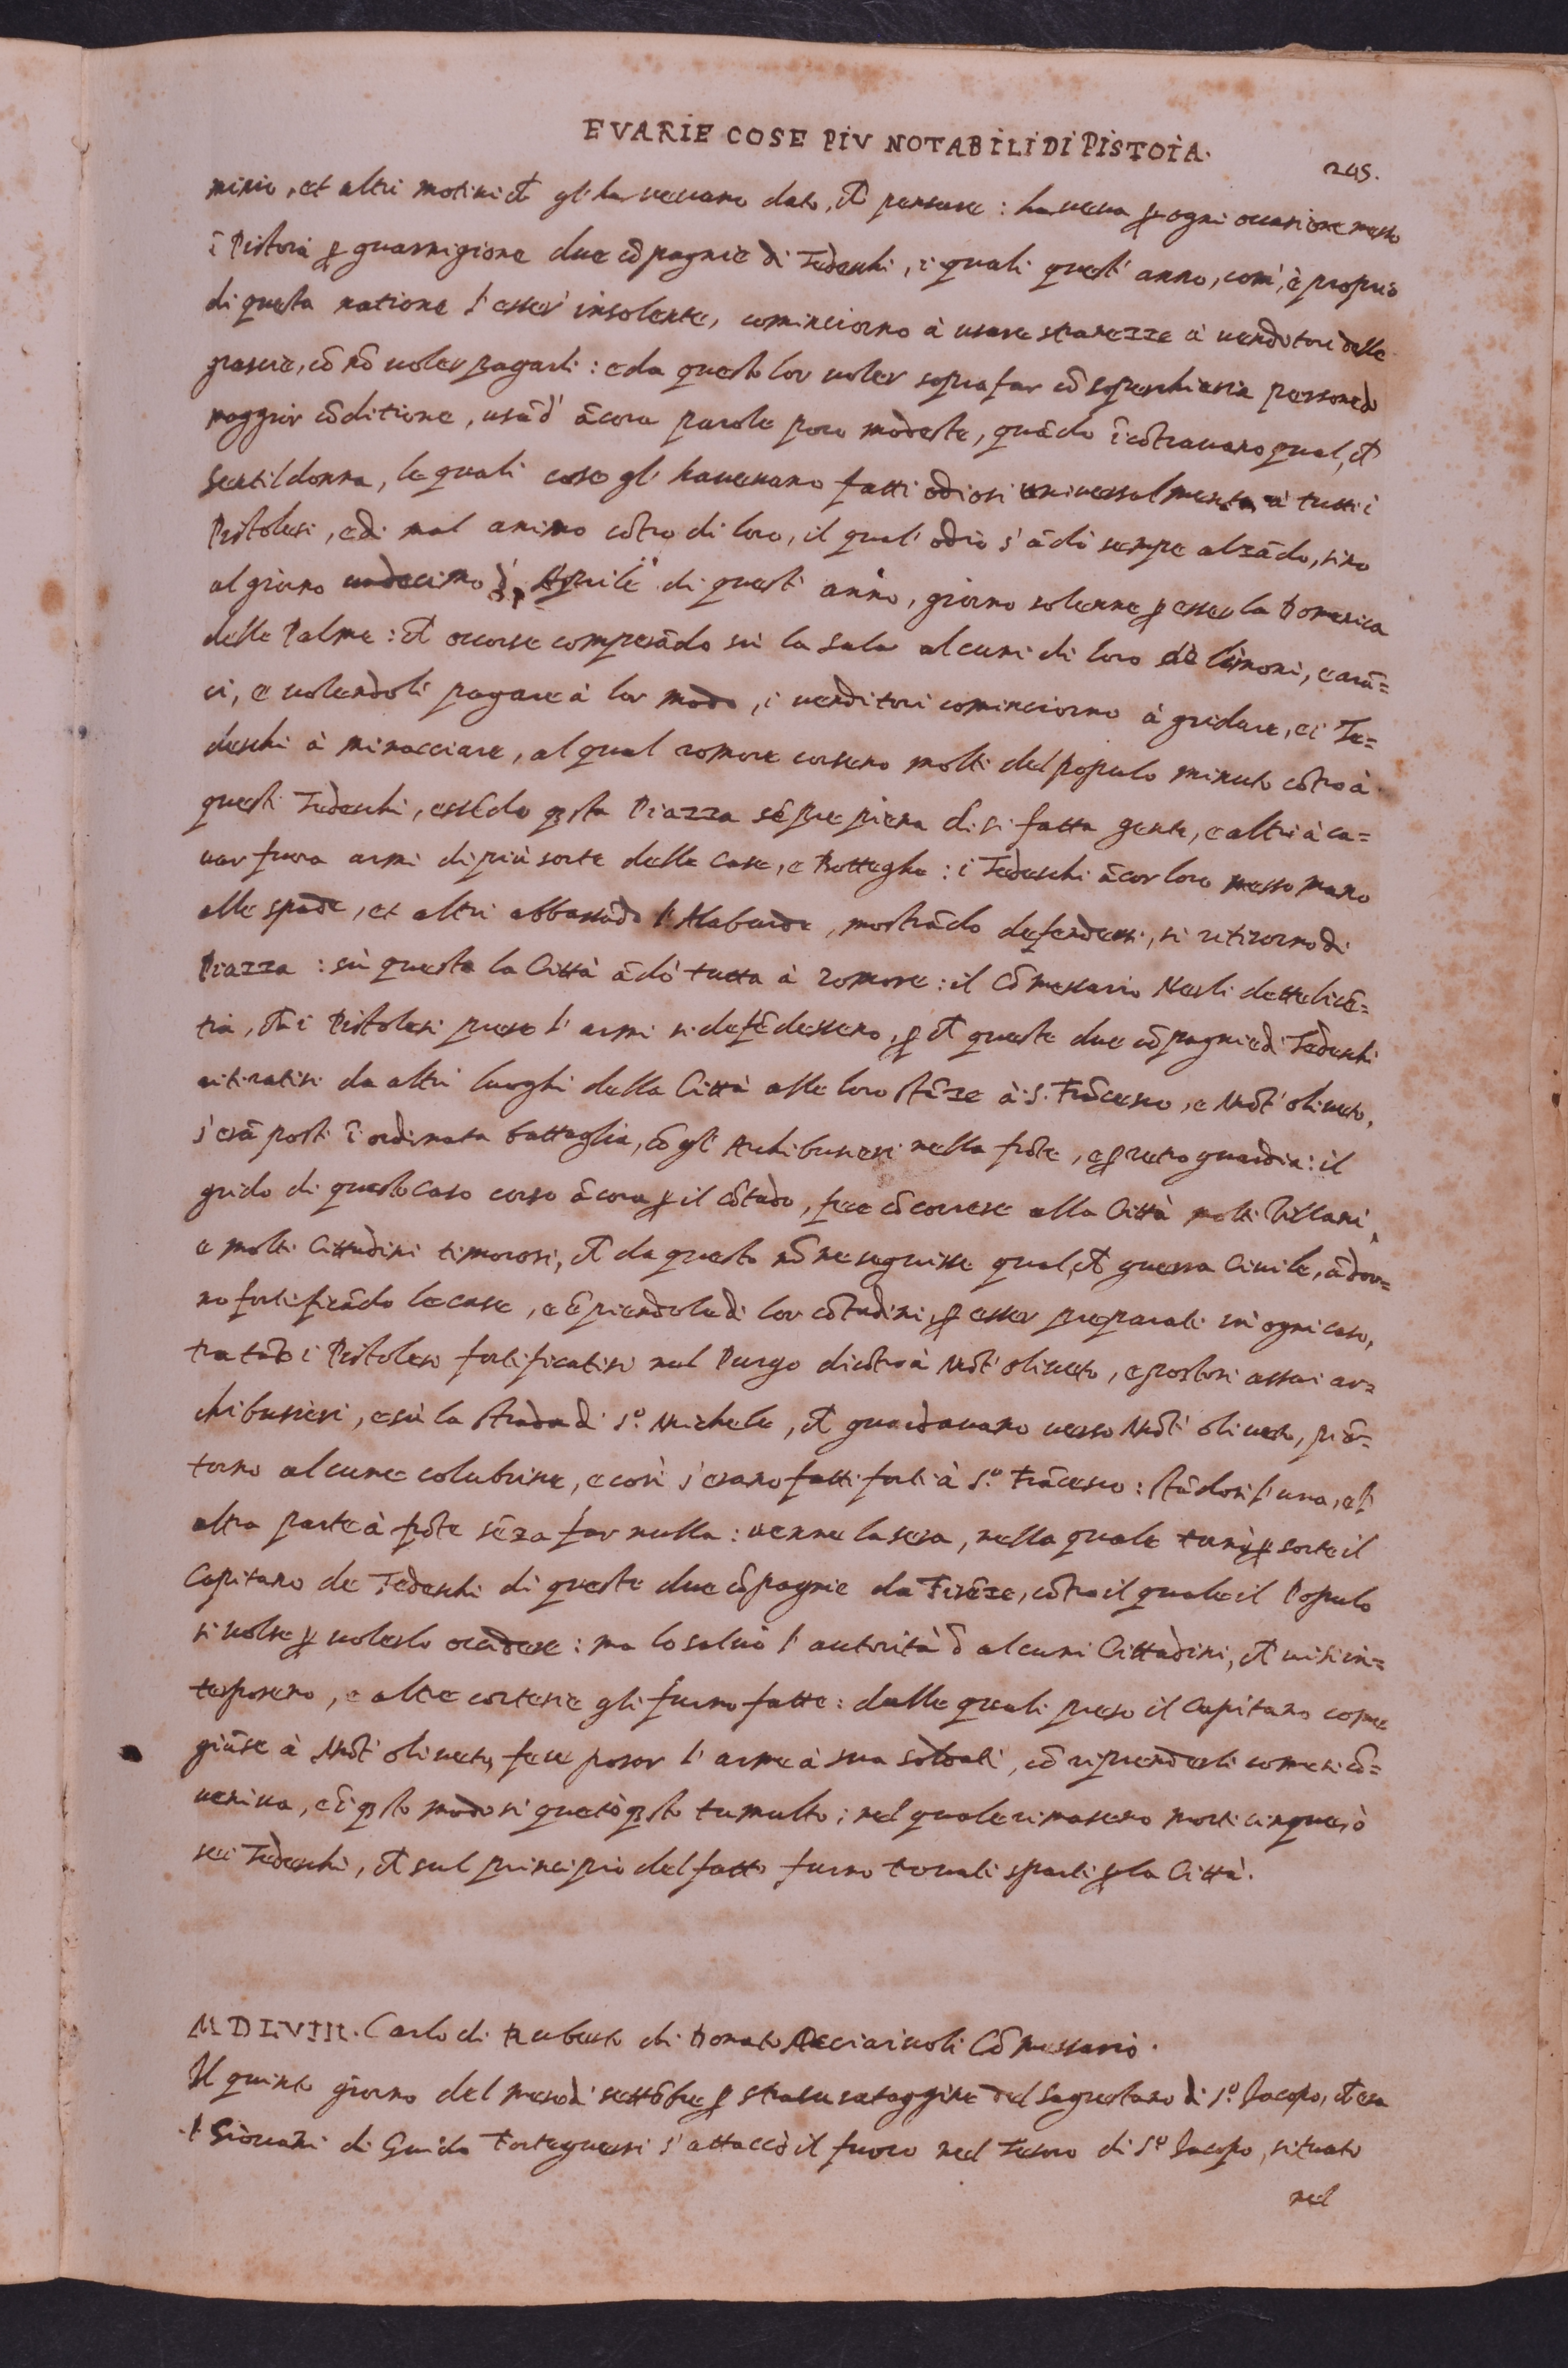 E VARIE COSE PIV NOTABILI DI PISTOIA.
245.
minio, et altri motivi ch̃ gl'havevano dato, ch̃ pensare: haveva ꝑ ogni occasione messo
ĩ Pistoia ꝑ guarnigione due cõpagnie di Tedeschi, i quali quest'anno, com'è proprio
di questa natione l'esser insolente, cominciorno à usare stranezze à venditori delle
grascie, cõ nõ voler pagarli: e da questo lor voler soprafar cõ soperchieria persone di
maggior cõditione, usãd' ãcora parole poco modeste, quãdo ĩcõtravano qual,ch̃
Gentildonna, le quali cose gl'havevano fatti odiosi universalmente à tutti i
Pistolesi, e di mal animo cõtro di loro, il qual'odio s'ãdò sempre alzãdo, sino
al giorno undecimo d'Aprile di quest'anno, giorno solenne ꝑ esser la Domenica
delle Palme: ch̃ occorse comperãdo sù la Sala alcuni di loro de limoni, e arã=
ci, e volendoli pagare à lor modo, i venditori cominciorno à gridare, e i Te=
deschi à minacciare, al qual romore corsero molti del populo minuto cõtro à
questi Tedeschi, essẽdo q̃sta Piazza sẽpre piena di sì fatta gente, e altri à ca=
var fuora armi di più sorte delle Case, e Botteghe: i Tedeschi ãcor loro messo mano
alle spade, et altri abbassãdo l'Alabarde, mostrãdo defendersi, si ritirorno di
Piazza: sù questo la Città ãdò tutta à romore: il Cõmessario Nerli dette licẽ=
tia, ch̃ i Pistolesi preso l'armi si defẽdessero, ꝑ ch̃ queste due cõpagnie di Tedeschi
ritiratisi da altri luoghi della Città alle loro stãze à S. Frãcesco, e Mõt'oliveto,
s'erã posti ĩ ordinata battaglia, cõ gl'Archibusieri nella frõte, e ꝑ retroguardia: il
grido di questo caso corso ãcora ꝑ il cõtado, fece cõcorrere alla Città molti Villani,
e molti Cittadini timorosi, ch̃ da questo nõ ne seguisse qual,ch̃ guerra Civile, ãdor=
no fortificãdo le case, e ẽpiendole di lor cõtadini, ꝑ esser preparati in ogni caso,
tra tãto i Pistolesi fortificatisi nel Borgo dicõtro à Mõt'oliveto, e postosi assai ar=
chibusieri, e sù la strada di S.º Michele, ch̃ guardavano verso Mõt'oliveto, piã=
torno alcune colubrine, e così s'erano fatti forti à S.º Frãcesco: Stãdosi l'una, e l'
altra parte à frõte sẽza far nulla: venne la sera, nella quale tornò ꝑ sorte il
Capitano de Tedeschi di queste due cõpagnie da Firẽze, cõtro il quale il Populo
si volse ꝑ volerlo occidere: ma lo salvò l'autorità d alcuni Cittadini, ch̃ vi si in=
terposero, e altre cortesie gli furno fatte: dalle quali preso il Capitano come
giũse à Mõt'oliveto, fece posar l'arme à sua soldati, cõ riprenderli come si cõ=
veniva, e ĩ q̃sto modo si quetò q̃sto tumulto: nel quale rimasero morti cinque, ò
sei Tedeschi, ch̃ sul principio del fatto furno trovati sparti ꝑ la Città.
MDLVIII. Carlo di Ruberto di Donato Acciaivoli Cõmessario.
Il quinto giorno del mese di settẽbre ꝑ strasurataggine del Sagrestano di S.º Jacopo, ch̃ era
Giovãni di Guido Forteguerri s'attaccò il fuoco nel Tesoro di S.º Jacopo, situato
nel